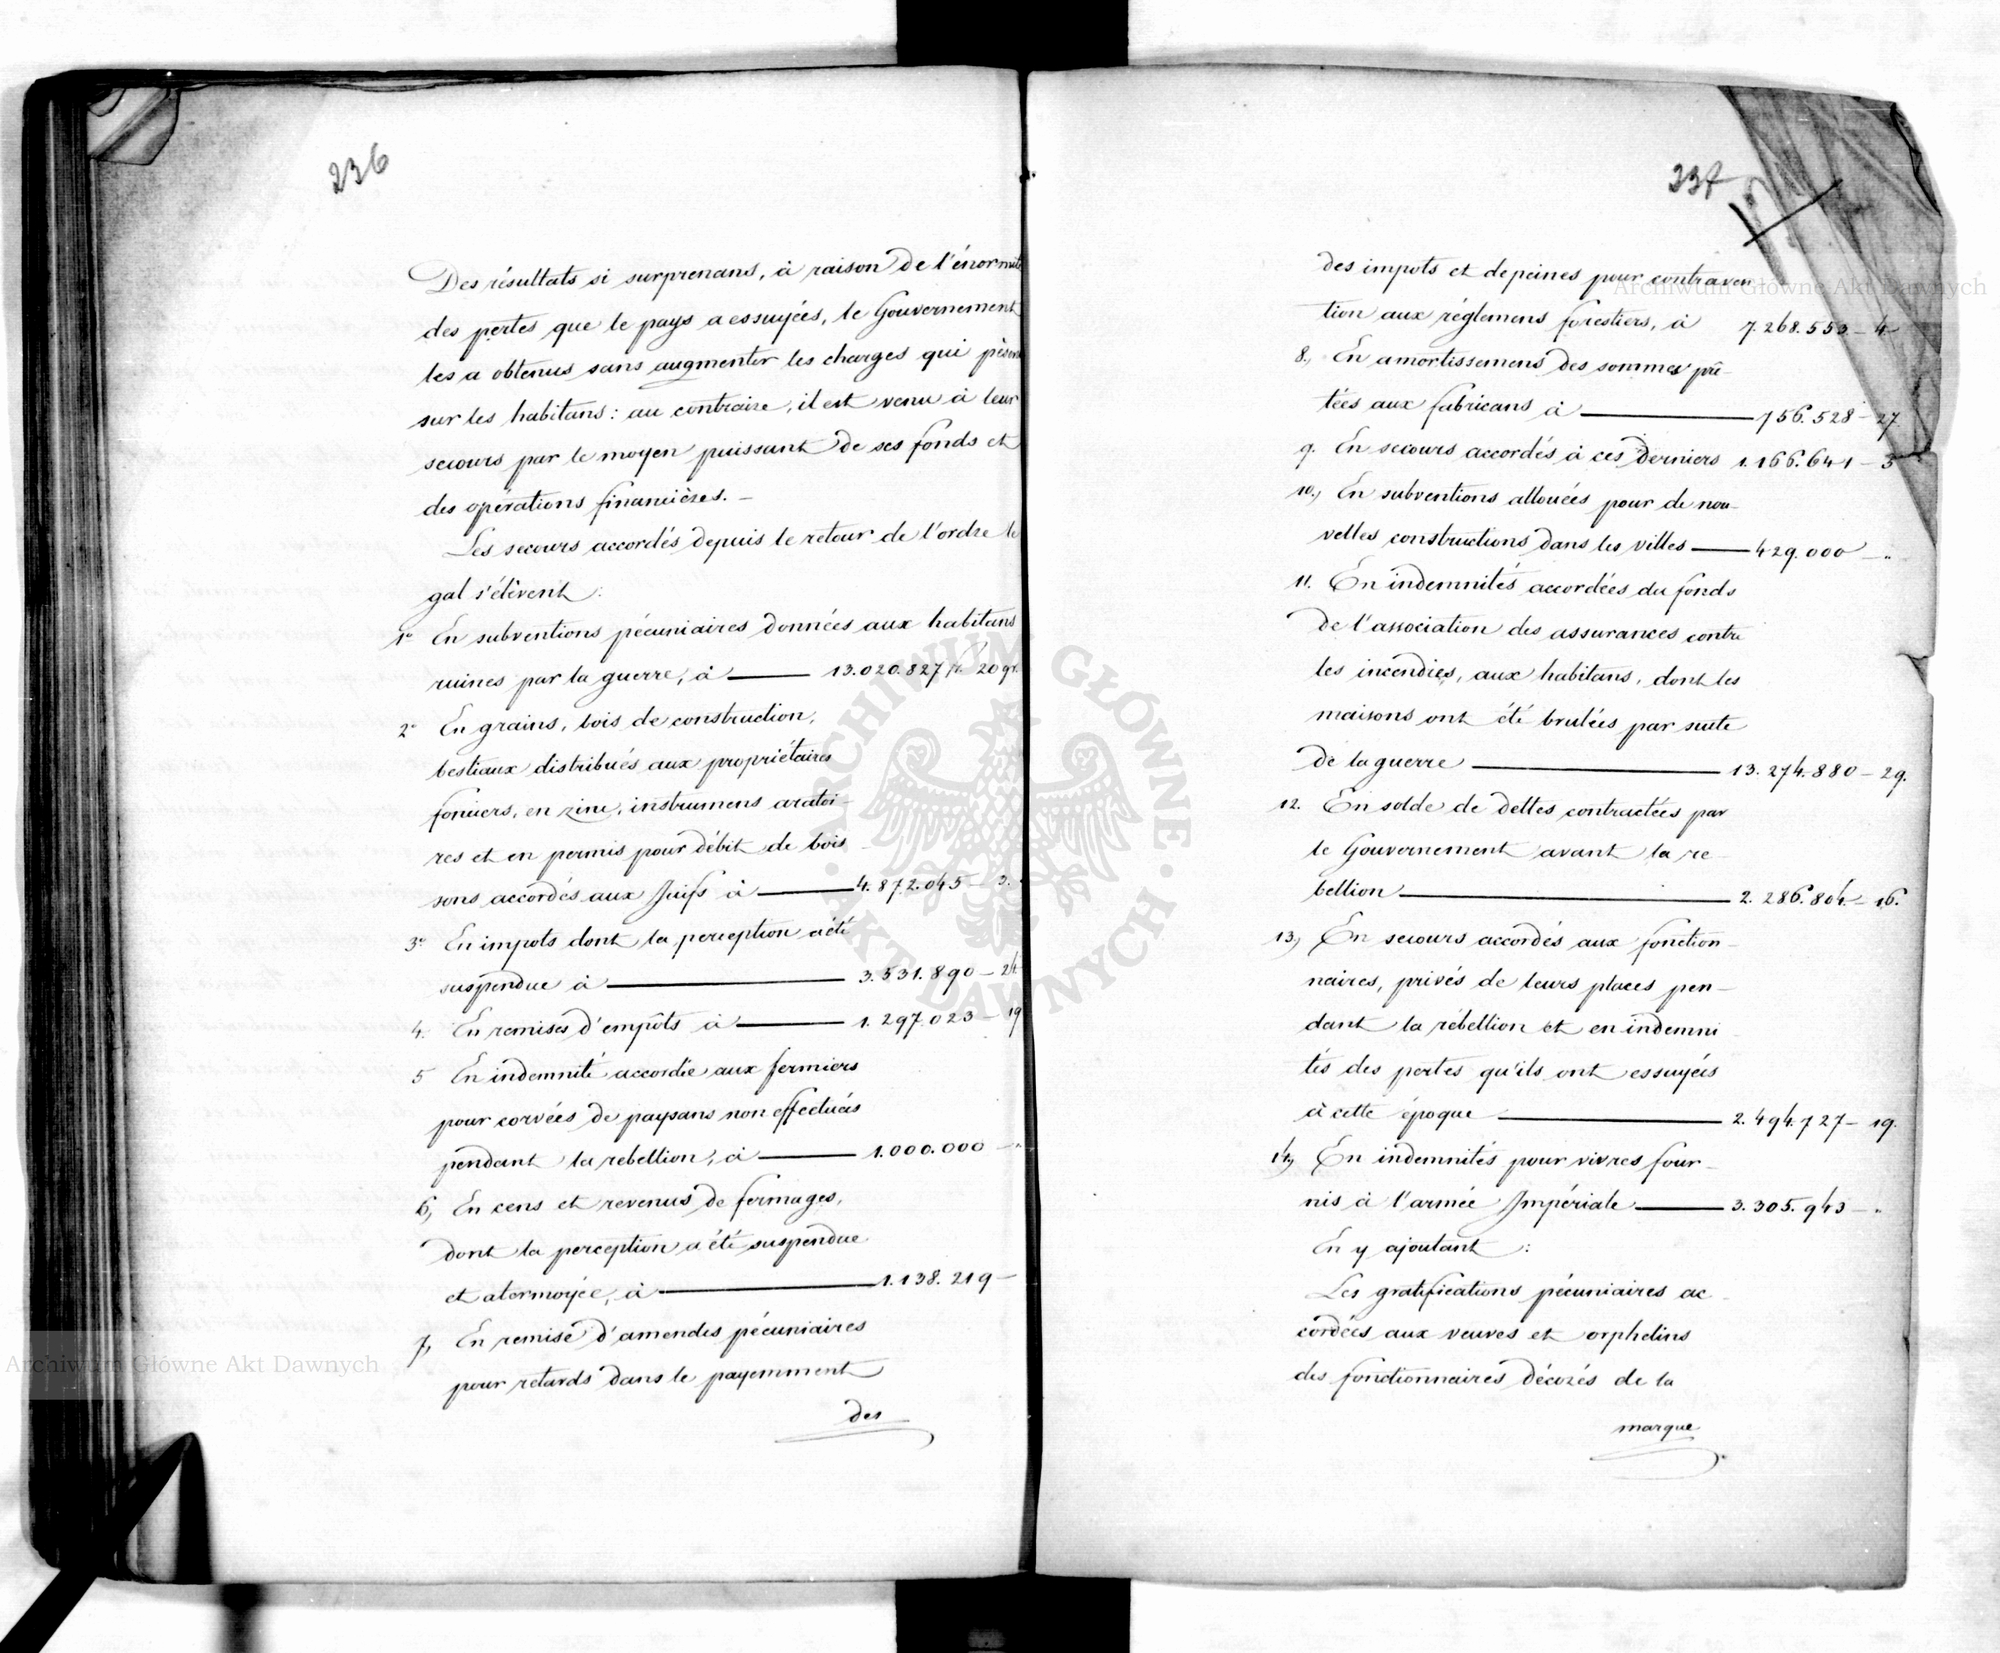 236
Des résultats si surprenans, à raison de l'énormité
des pertes que le pays a essuyées, le Gouvernement
les a obtenus sans augmenter les charges qui pèsent
sur les habitans: au contraire, il est venu à leur
secours par le moyen puissant de ses fonds et
des opérations financières. —
Les secours accordés depuis le retour de l'ordre lé
gal s'élèvent :
1° En subventions pécuniaires données aux habitans
ruinés par la guerre, à — 13.020.827 fl. 20 gr.
2° En grains, bois de construction,
bestiaux distribués aux propriétaires
fonciers, en zinc, instrumens aratoi-
res et en permis pour débit de bois
sons accordés aux Juifs à — 4.872.045 — 3.
3° En impots dont la perception a été
suspendue à — 3.531.890 — 24
4. En remises d'empôts à — 1.297.023 — 19
5 En indemnité accordée aux fermiers
pour corvées de paysans non effectuées
pendant la rebellion, à — 1.000.000 — "
6, En cens et revenus de fermages,
dont la perception a été suspendue
et atermoyée, à — 1.138.219 —
7, En remise d'amendes pécuniaires
pour retards dans le payemment
des
237
des impots et de peines pour contraven
tion aux réglemens forestiers, à 7.268.553 — 4
8., En amortissemens des sommes prê-
tées aux fabricans à — 756.528 — 27
9. En secours accordés à ces derniers 1.166.641 — 3
10., En subventions allouées pour de nou-
velles constructions dans les villes — 429.000 — "
11. En indemnités accordées du fonds
de l'association des assurances contre
les incendies, aux habitans, dont les
maisons ont été brulées par suite
de la guerre — 13.274.880 — 29.
12. En solde de dettes contractées par
le Gouvernement avant la re-
bellion — 2.286.804 — 16.
13, En secours accordés aux fonction-
naires, privés de leurs places pen-
dant la rébellion et en indemni
tés des pertes qu'ils ont essuyées
à cette époque — 2.494.727 — 19.
14, En indemnités pour vivres four-
nis à l'armée Impériale — 3.305.943 — "
En y ajoutant :
Les gratifications pécuniaires ac-
cordées aux veuves et orphelins
des fonctionnaires décorés de la
marque
Archiwum Główne Akt Dawnych
Archiwum Główne Akt Dawnych
ARCHIWUM GŁÓWNE · AKT DAWNYCH ·